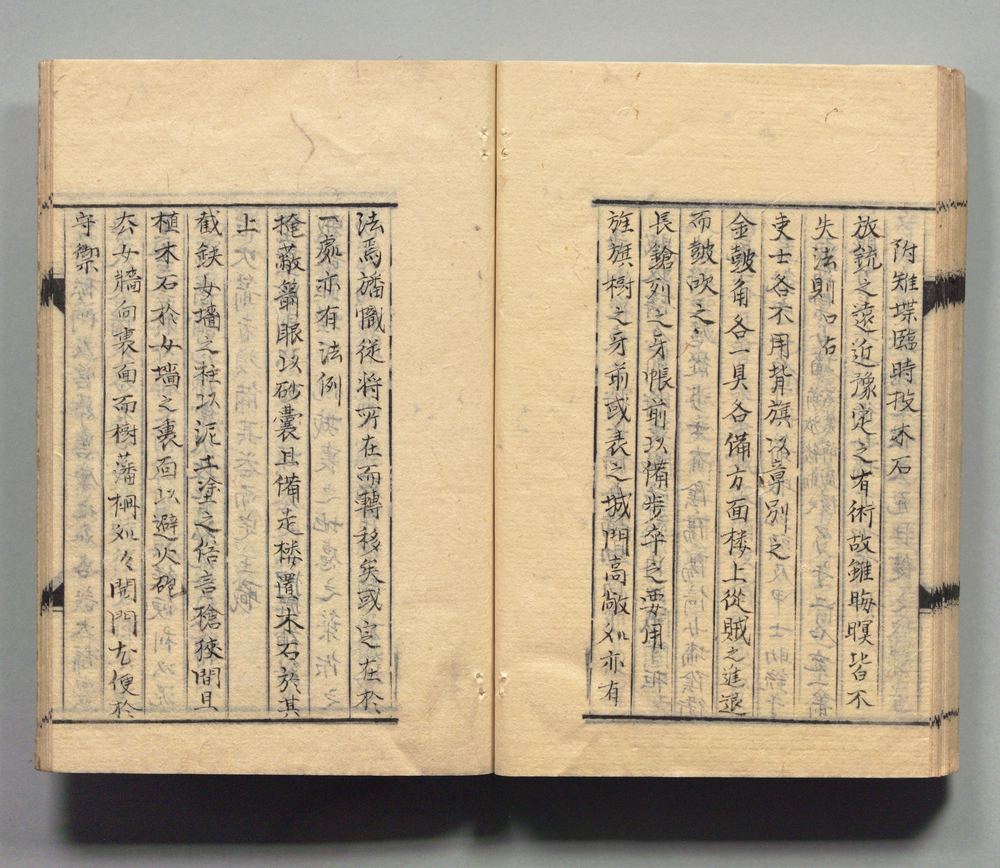 附雉堞臨時投木石
放銃之遠近豫定之有術故雖晦暝皆不
失法
吏士各不用背旗以章別之
金皷角各一具各備方面楼上從賊之進退
而皷吹之
長鎗列之牙帳前以備步卒之要用
旌旗樹之牙前或表之城門高敞処亦有
法焉旛幟從将所在而轉移矣或定在於
一處亦有法例
掩蔽箭眼以砂囊且備走楼置木石於其
上
截鉄女墻之柱以泥土塗之俗言狹間且
植木石於女墻之裏面以避火砲
去女牆向裏面而樹藩柵処々開門尤便於
守禦